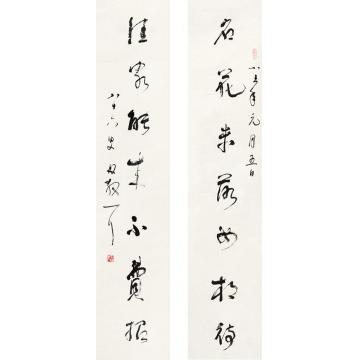 名花未落如相待
八三年元月五日
佳客能来不費招
八十六叟林散耳